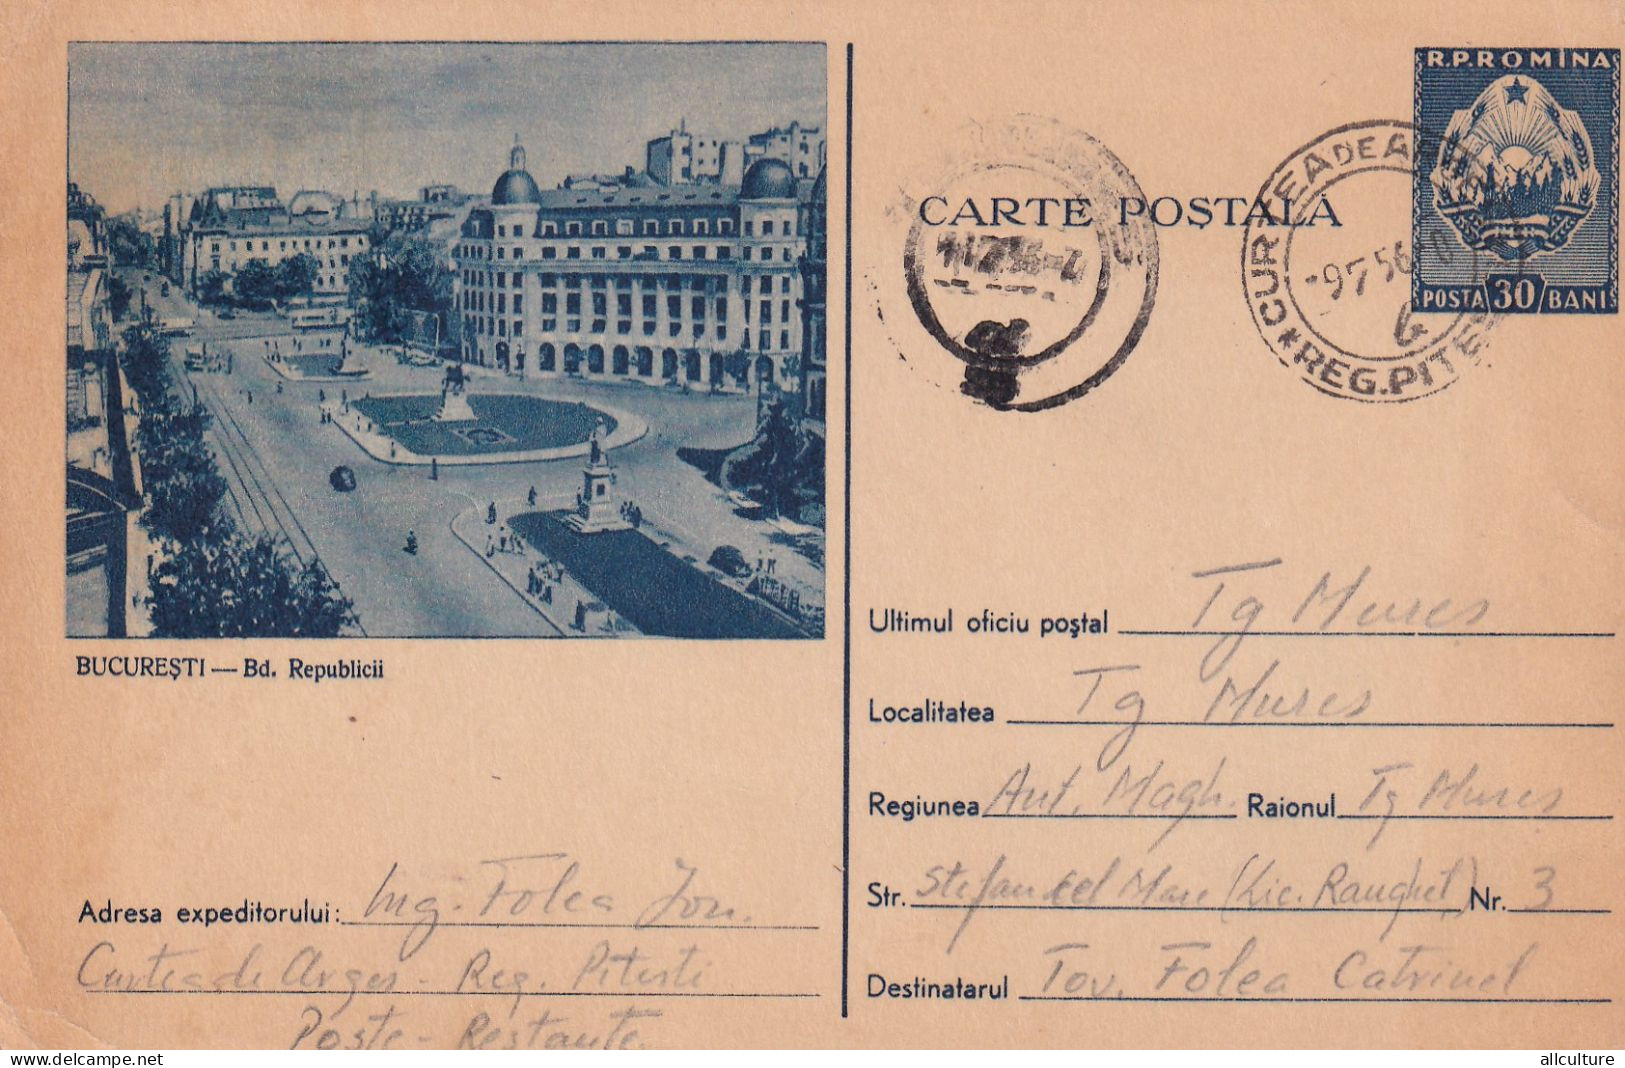 R.P.ROMINA
POSTA 30 BANI
CARTE POȘTALĂ
CURTEA DE
-9 7 56
REG. PITE
BUCUREȘTI — Bd. Republicii
Ultimul oficiu poștal Tg Mures
Localitatea Tg Mures
Regiunea Aut. Magh. Raionul Tg Mures
Str. Stefan cel Mare (Lic. ) Nr. 3
Destinatarul Tov. Folea Catrinel
Adresa expeditorului: Ing. Folea Ion.
Curtea de Arges - Reg. Pitesti
Poste - Restante
delcampe.net
allculture